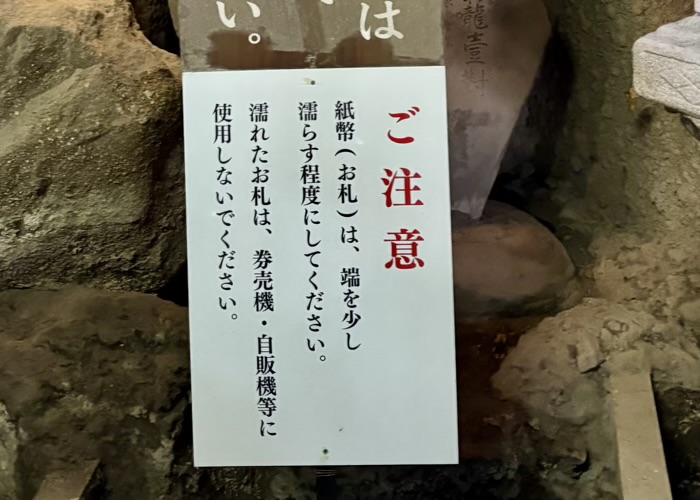 は
い。
龍壹對
ご注意
紙幣(お札)は、端を少し
濡らす程度にしてください。
濡れたお札は、券売機・自販機等に
使用しないでください。